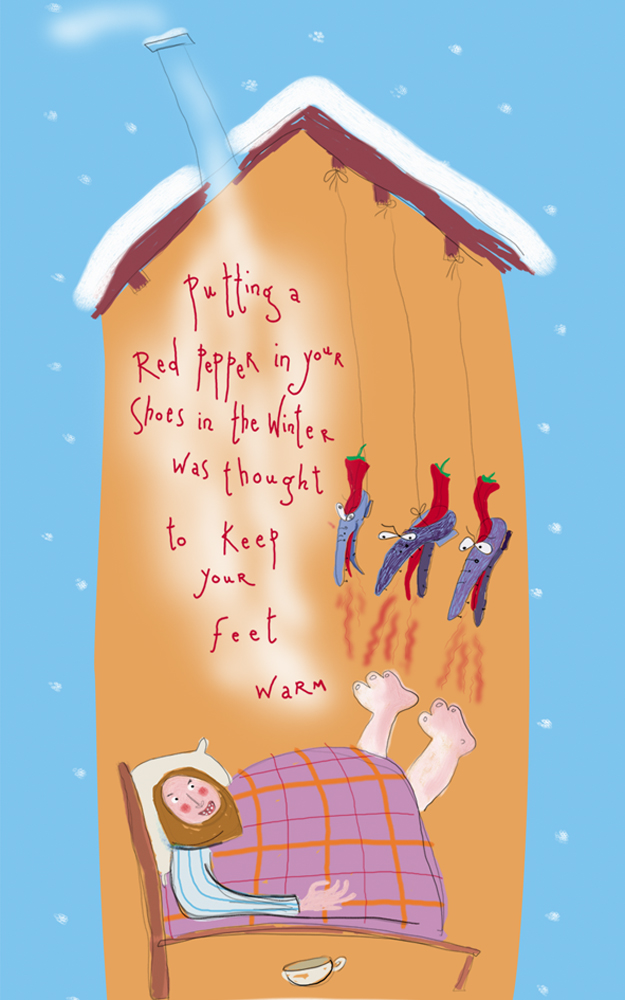 Putting a
Red Pepper in your
Shoes in the Winter
was thought
to Keep
your
feet
warm